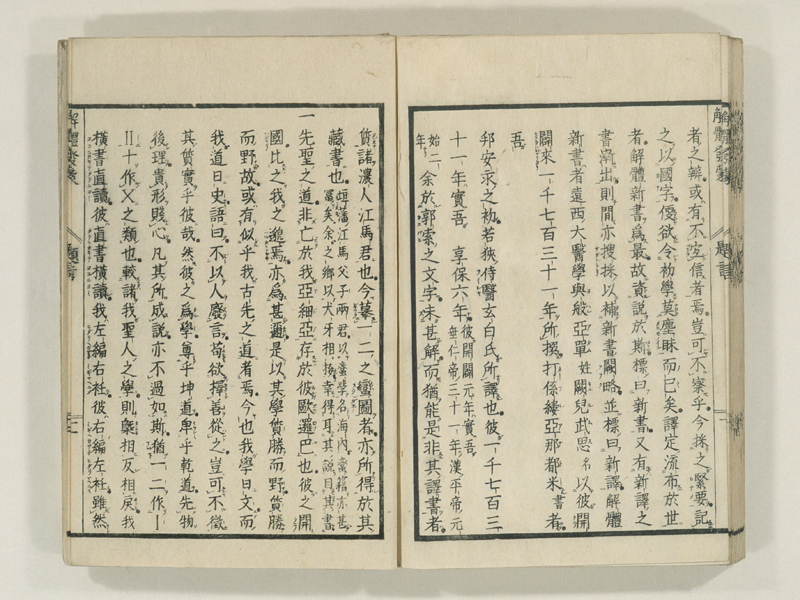 者之辨或有不宻信者焉豈可不察乎今採之緊要記
之以國字便欲令初學莫塵眯而已矣譯定流布於世
者解體新書爲最故資説於斯標曰新書又有新譯之
書漸出則間亦搜採以補新書闕略並標曰新譯解體
新書者遠西大醫學與般亞單姓闕兒武思名以彼開
闢來一千七百三十一年所撰打係縷亞那都米書者
吾
邦安永之初若狹侍醫玄白氏所譯也彼一千七百三
十一年實吾 享保六年彼開闢元年實吾
垂仁帝三十一年漢平帝元
始二年余於郭索之文字未甚解而猶能是非其譯書者
質諸濃人江馬君也今摹一二之蠻圖者亦所得於其
藏書也垣潘江馬父子兩君以蠻學名海内蠻籍亦甚
富矣余之鄉以犬牙相接幸得耳其説目其書
一先聖之道非亡於我亞細亞存於彼歐邏巴也彼之開
國比之我之邈焉亦爲甚邇是以其學質勝而野質勝
而野故或有似乎我古先之道者焉今也我學日文而
我道日史語曰不以人廢言苟欲擇善從之豈可不徵
其質實乎彼哉然彼之爲學尊乎坤道卑乎乾道先物
後理貴形賤心凡其所成説亦不過如斯猶一二作Ⅰ
Ⅱ十作X之類也較諸我聖人之學則槩相反相戻我
橫書直讀彼直書橫讀我左編右杜彼右編左杜雖然
解體發蒙
題言